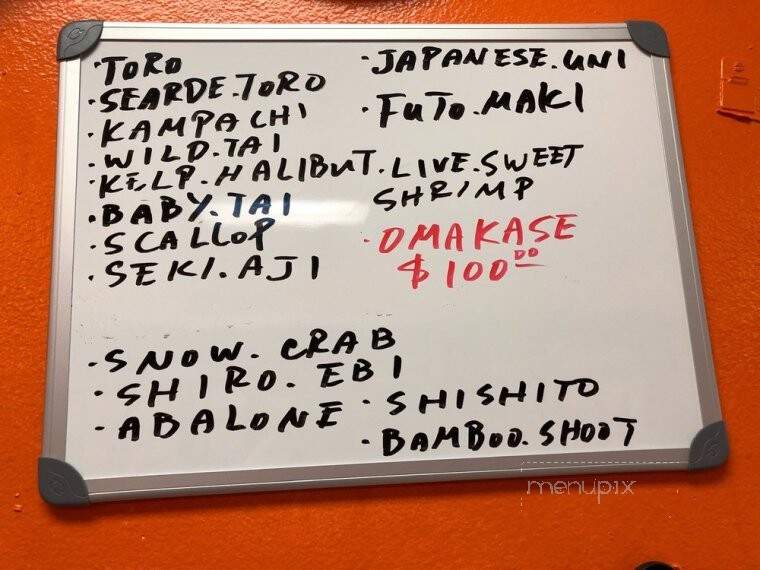 · TORO
· SEARDE.TORO
· KAMPACHI
· WILD.TAI
· KELP.HALIBUT
· BABY.TAI
· SCALLOP
· SEKI.AJI
· JAPANESE.UNI
· FUTO.MAKI
· LIVE.SWEET
SHRIMP
· OMAKASE
$100.00
· SNOW. CRAB
· SHIRO. EBI
· ABALONE
· SHISHITO
· BAMBOO.SHOOT
menupix